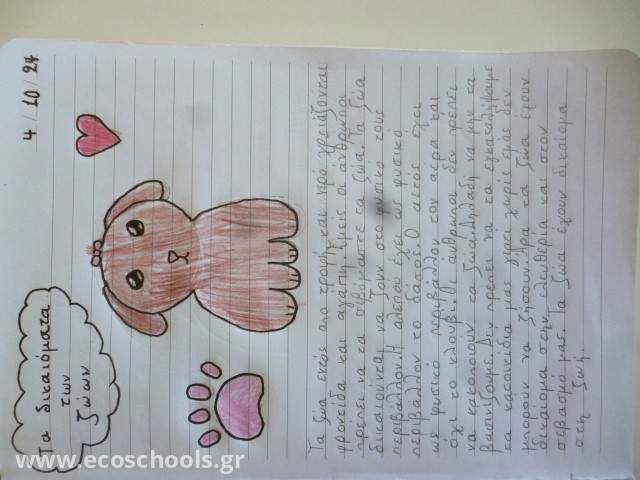 4/10/24
Τα δικαιόματα
των
ζώων
Τα ζώα εκτός απο τροφή και νερό χρειάζονται
φροντίδα και αγάπη. Εμείς οι άνθρωποι
πρέπει να τα σεβόμαστε τα ζώα. Τα ζώα
δικαιούνται να ζουν στο φυσικό τους
περιβάλλον. Η αλεπού έχει ως φυσικό
περιβάλλον το δάσος. Ο αετός έχει
ως φυσικό περιβάλλον τον αέρα και
όχι το κλουβί. Οι ανθρωποι δεν πρέπει
να κακοποιουν τα ζώα δηλαδή να μην τα
βασανίζουμε. Δεν πρέπει να τα εγκαταλήψουμε
τα κατοικίδια μας γιατί χωρίς εμάς δεν
μπορουν να ζήσουν. Άρα τα ζώα έχουν
δικαίομα στην ελευθερία και στον
σεβασμό μας. Τα ζώα έχουν δικαίομα
στη ζωή.
www.ecoschools.gr